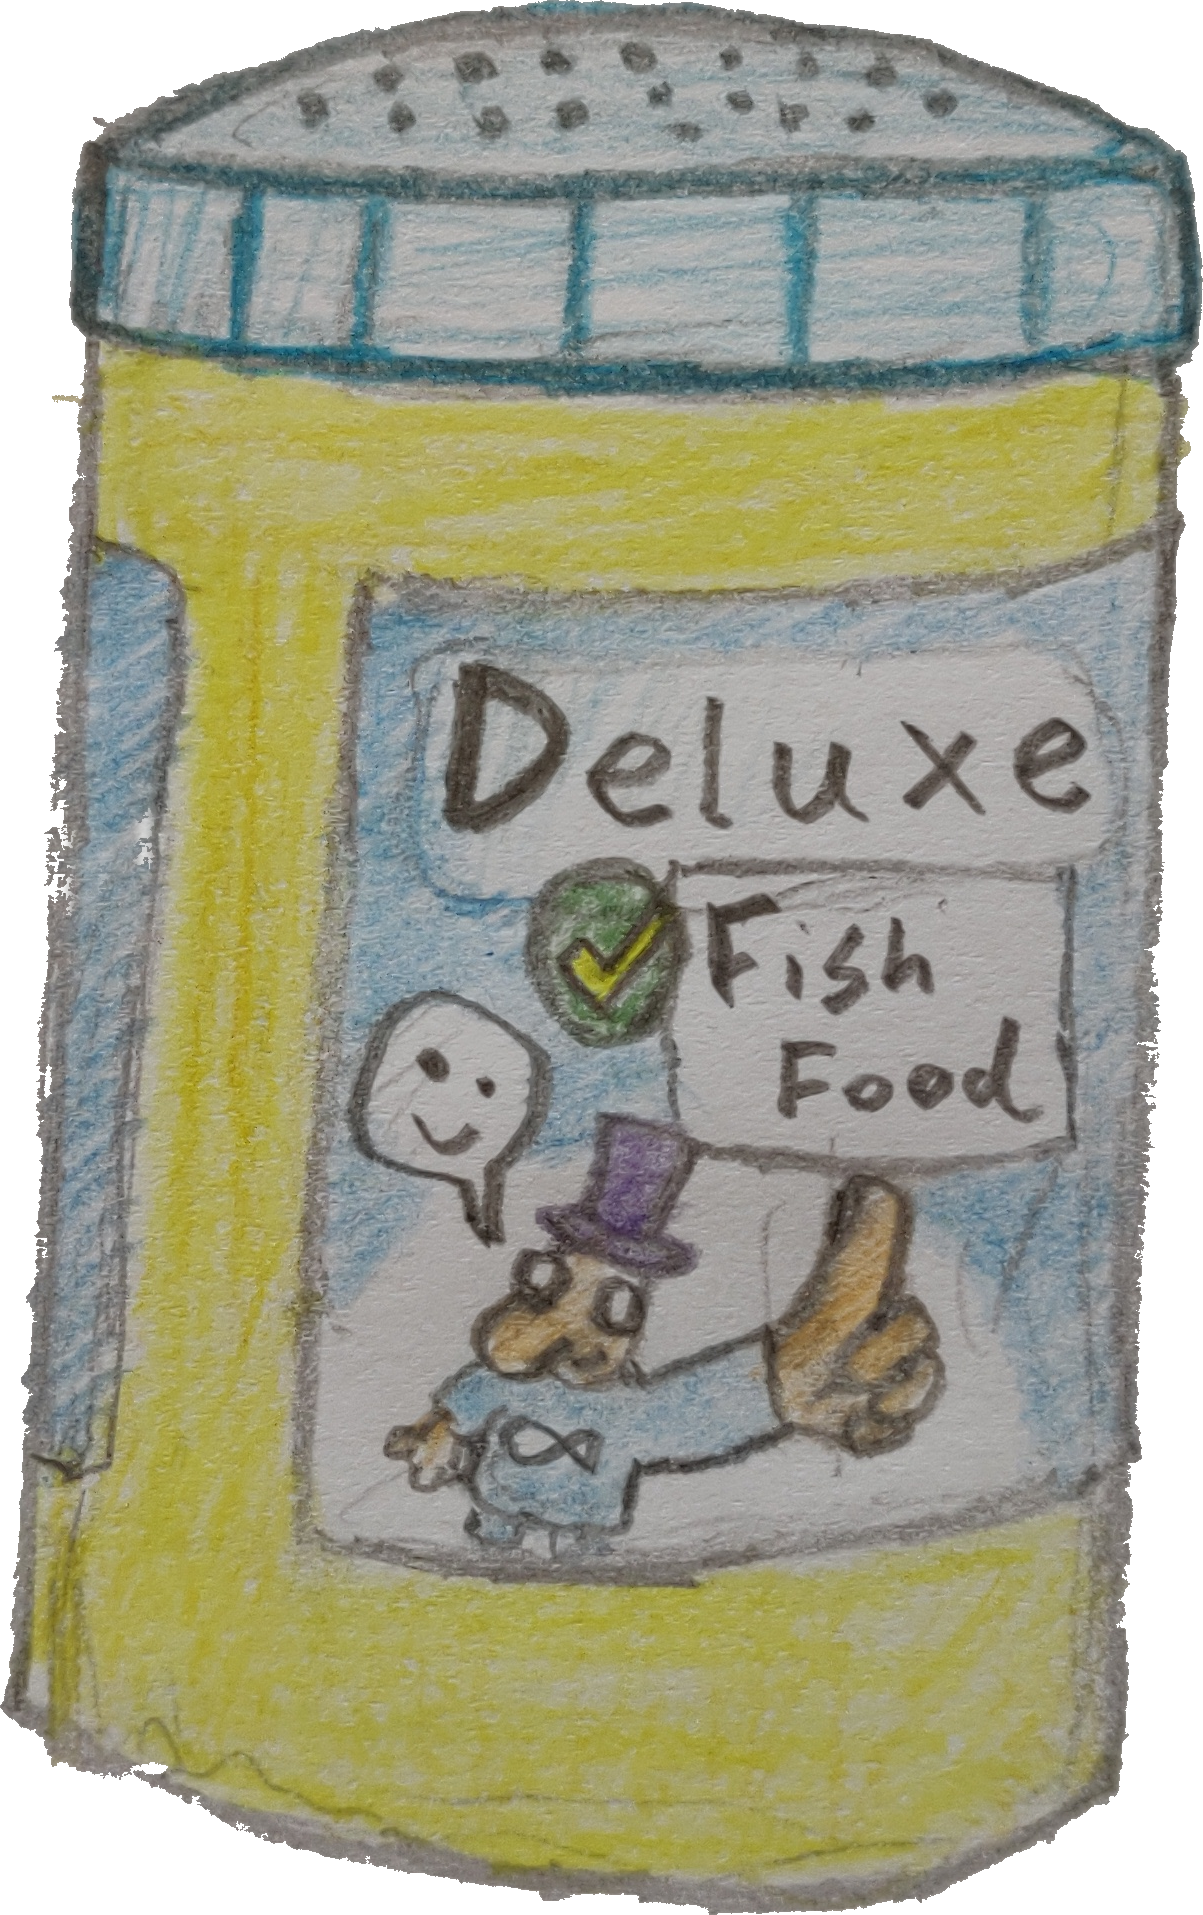 Deluxe
Fish
Food